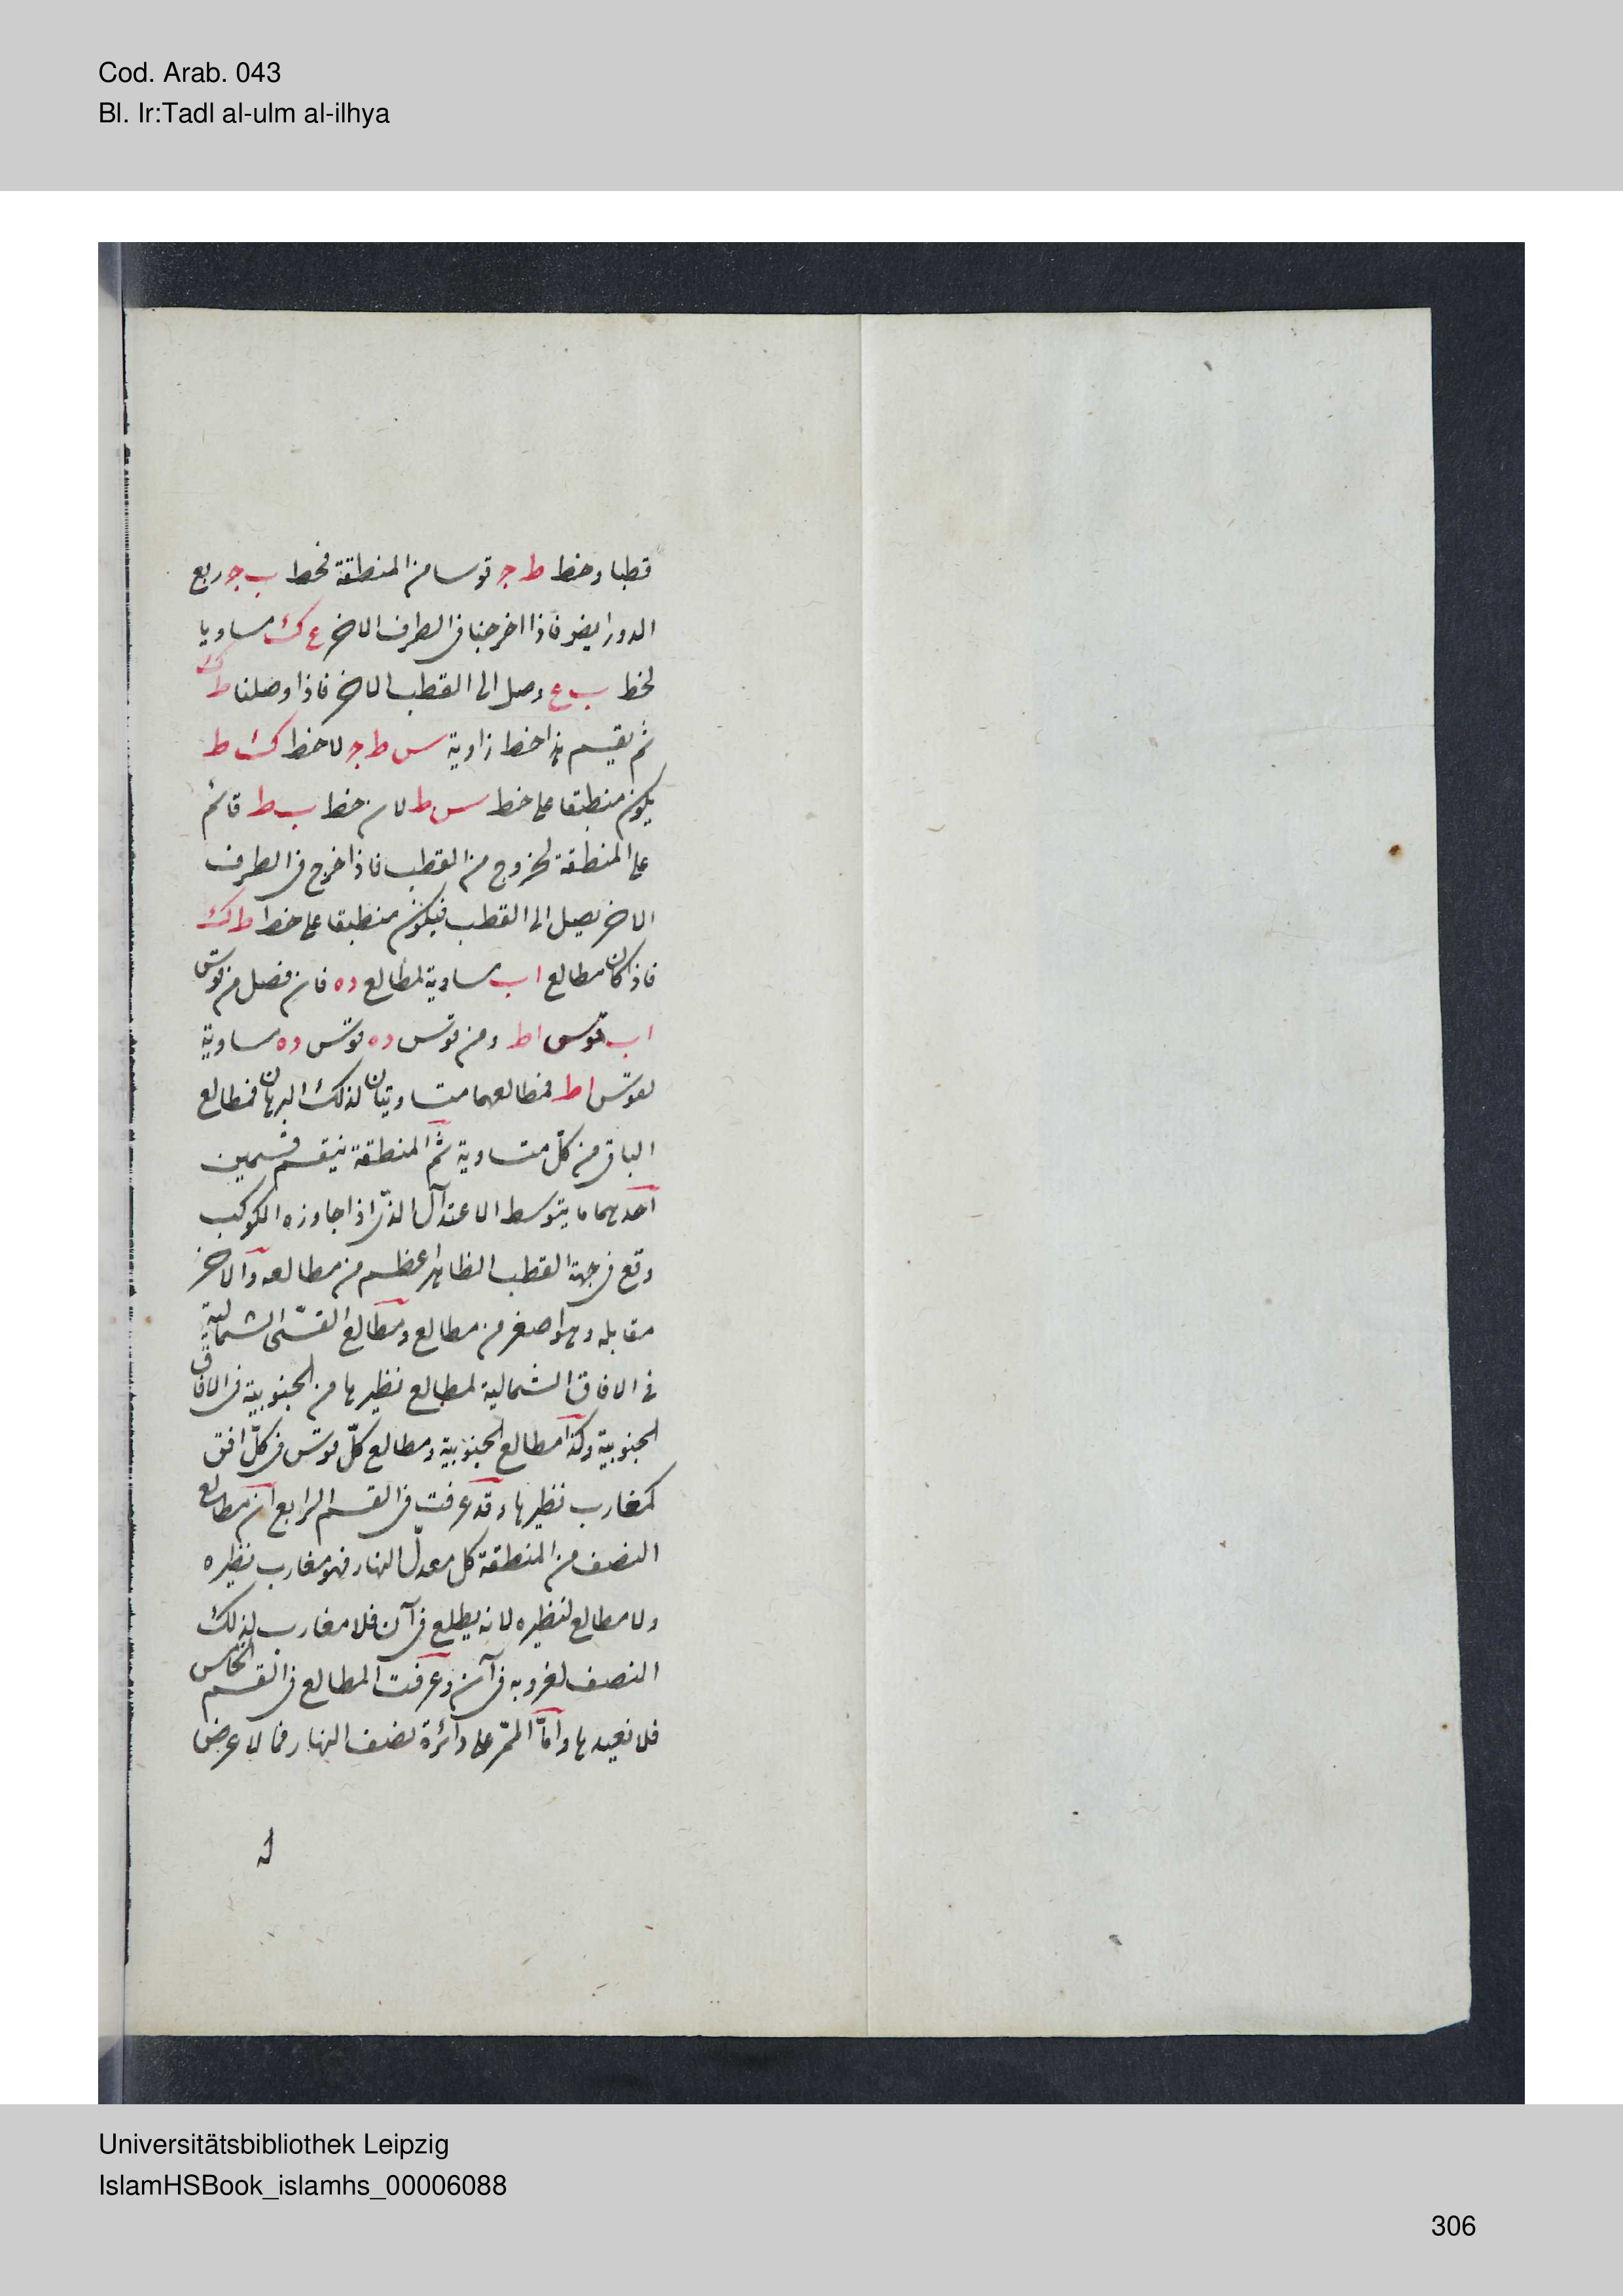 Cod. Arab. 043
Bl. Ir:Tadl al-ulm al-ilhya
قطبا وخط ط ج قوسا من المنطقة فخط ب ج ربع
الدور ايضو فاذا اخرجنا فى الطرف الاخر ع ك مساويا
لخط ب ع وصل الى القطب الاخر فاذا وصلنا ط ك
ثم يقسم هذا خط زاوية س ط ج لا خط ك ط
يكون منطبقا على خط س ط لان خط ب ط قائم
على المنطقة لخروج من القطب فاذا خرج فى الطرف
الاخر يصل الى القطب فيكون منطبقا على خط ط ك
فاذ كان مطالع ا ب مساوية لمطالع ده فان فصل من قوس
ا ب قوس اط ومن قوس ده قوس ده مساوية
لقوس اط فمطالعهما متساويتان لذلك البرهان فمطالع
الباقى من كل متساوية ثم المنطقة ينقسم قسمين
احدهما ما يتوسط الاعتدال الذى اذا جاوزه الكوكب
وقع فى جهة القطب الظاهر اعظم من مطالعه والاخر
مقابله وهو اصغر من مطالع ومطالع القسى الشمالية
فى الافاق الشمالية لمطالع نظيرها من الجنوبية فى الافاق
الجنوبية وكذا مطالع الجنوبية ومطالع كل قوس فى كل افق
كمغارب نظيرها وقد عرفت فى القسم الرابع ان مطالع
النصف من المنطقة كل معدل النهار فهو مغارب نظيره
ولا مطالع لنظيره لانه يطلع فى آن فلا مغارب لذلك
النصف لغروبه فى آن وعرفت المطالع فى القسم الخامس
فلا نعيدها واما الممر على دائرة نصف النهار فما لا عرض
له
Universitätsbibliothek Leipzig
IslamHSBook_islamhs_00006088
306